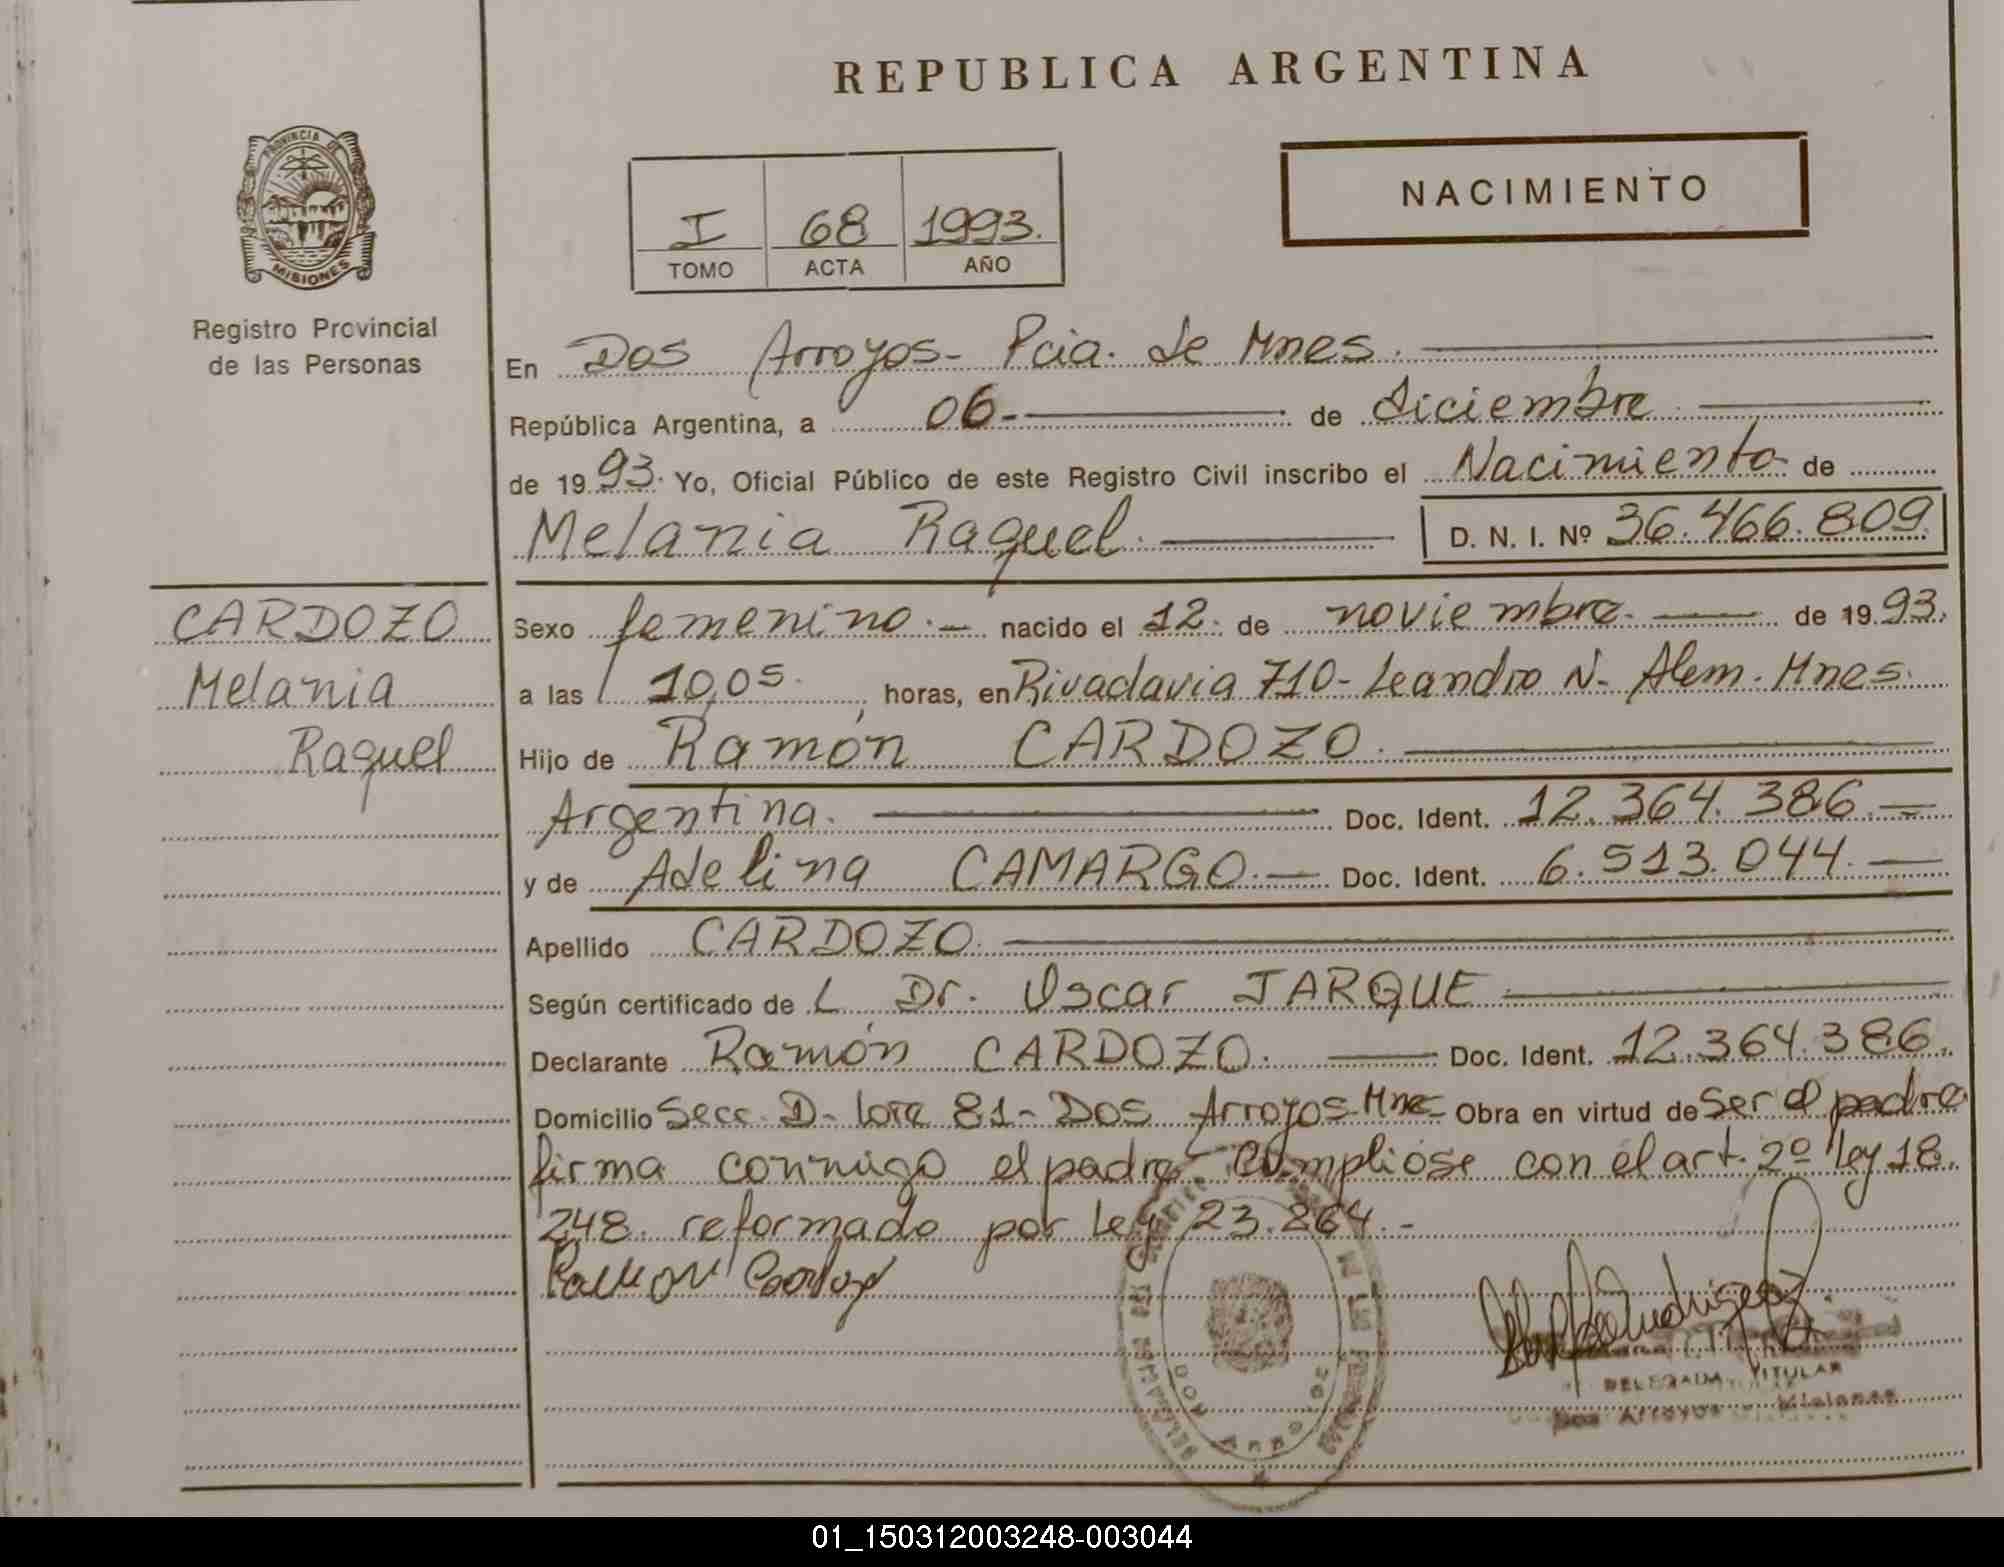 REPUBLICA ARGENTINA
PROVINCIA DE
MISIONES
Registro Provincial
de las Personas
I 68 1993.
TOMO ACTA AÑO
NACIMIENTO
En Dos Arroyos- Pcia. de Mnes.
República Argentina, a 06- de diciembre
de 19 93. Yo, Oficial Público de este Registro Civil inscribo el Nacimiento de
Melania Raquel. D. N. I. Nº 36.466.809
CARDOZO
Melania
Raquel
Sexo femenino.- nacido el 12. de noviembre. de 19 93.
a las 10,05. horas, en Rivadavia 710- Leandro N. Alem. Mnes.
Hijo de Ramón CARDOZO.
Argentina. Doc. Ident. 12.364.386.-
y de Adelina CAMARGO.- Doc. Ident. 6.513.044.-
Apellido CARDOZO.
Según certificado de L Dr. Oscar JARQUE
Declarante Ramón CARDOZO. Doc. Ident. 12.364.386.
Domicilio Secc. D- lote 81- Dos Arroyos-Mnes Obra en virtud de Ser el padre
firma conmigo el padre Cumpliose con el art. 2º ley 18.
248. reformado por Ley 23.264.-
Ramon Cardozo
DELEGADA TITULAR
Dos Arroyos Misiones
01_150312003248-003044